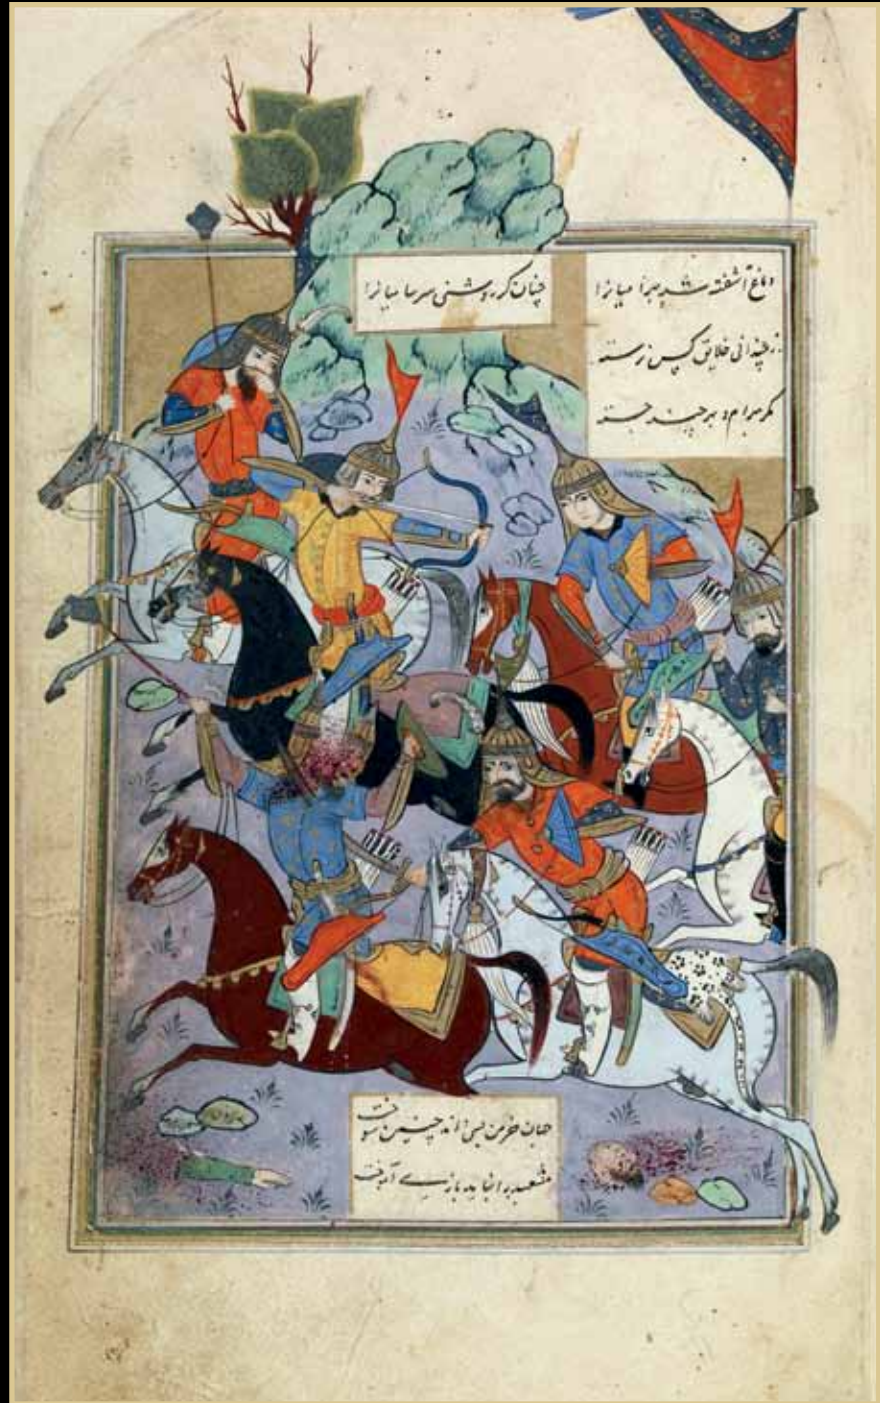 دماغ آشفته شد بهرامیانرا
چنان کز روشنی سرسامیانرا
ز چندانی خلایق کس نرسته
مکر بهرام و بهری چند خسته
جهان خرمن بسی داند چنین سوخت
مشعبد را نباید بازی آموخت